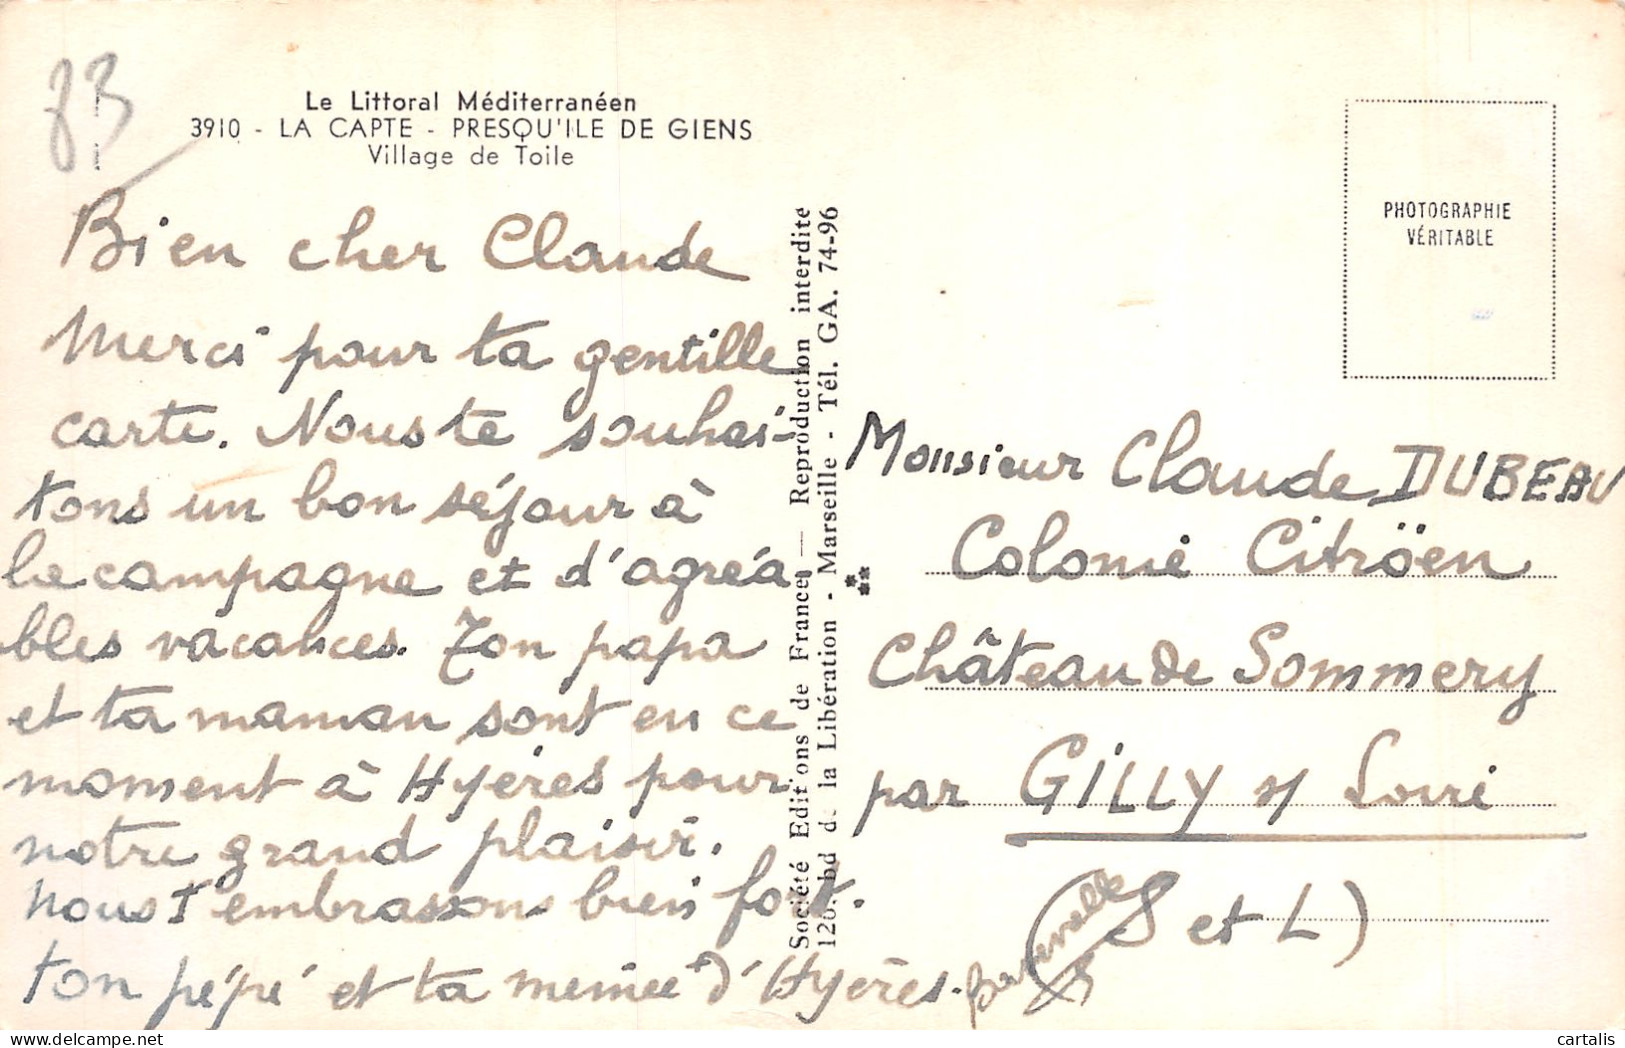 83
Le Littoral Méditerranéen
3910 - LA CAPTE - PRESQU'ILE DE GIENS
Village de Toile
Bien cher Claude
Merci pour ta gentille
carte. Nous te souhai-
tons un bon séjour à
la campagne et d'agréa
bles vacances. Ton papa
et ta maman sont en ce
moment à Hyères pour
notre grand plaisir.
Nous t'embrassons bien fort.
ton pépé et ta mémée d'Hyères.
Société Editions de France — Reproduction interdite
120, bd de la Libération - Marseille - Tél. GA. 74-96
PHOTOGRAPHIE
VÉRITABLE
Monsieur Claude DUBEAU
Colonie Citröen
Château de Sommery
par GILLY s/ Loire
(S et L)
cartalis